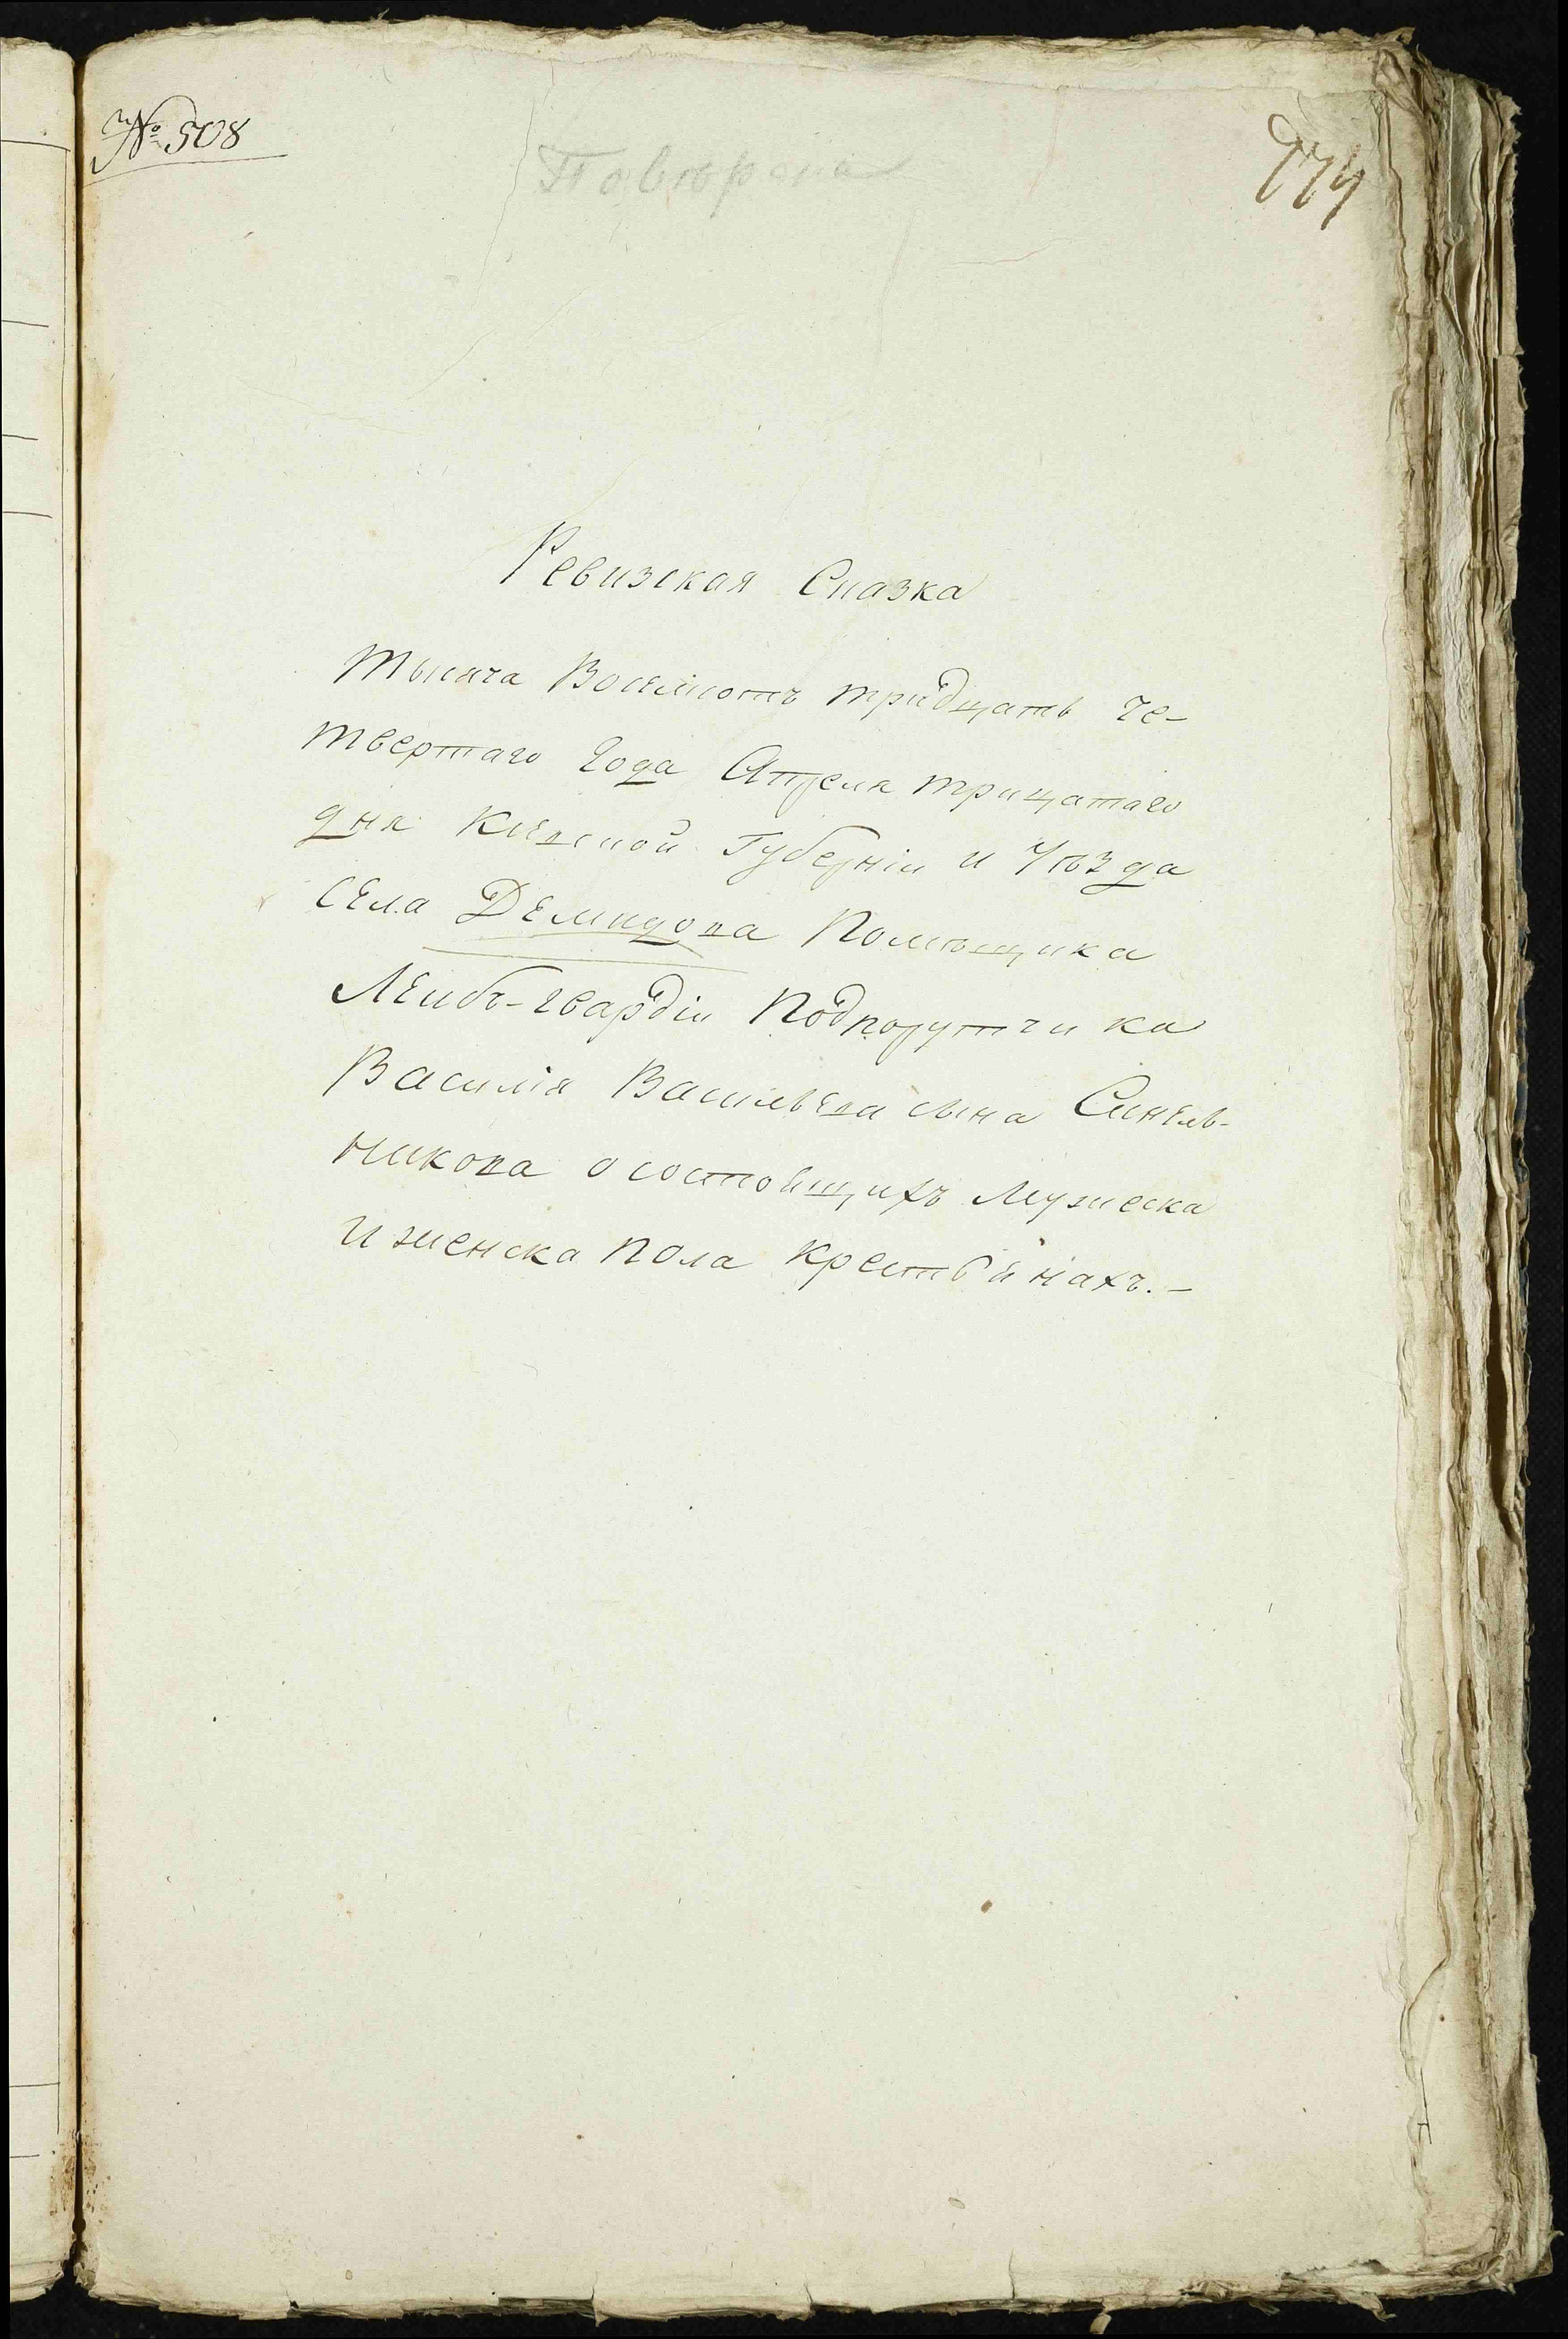 № 508
Повѣрена
774
Ревизская Сказка
Тысяча Восемсотъ тридцать че-
твертаго Года Апреля трицатаго
дня Кіевской Губерніи и Уѣзда
села Демидова Помѣщика
Леибъ-гвардіи Подпорутчика
Василія Васильева сына Синель-
никова о состоящихъ Мужеска
и женска пола крестьянахъ.-